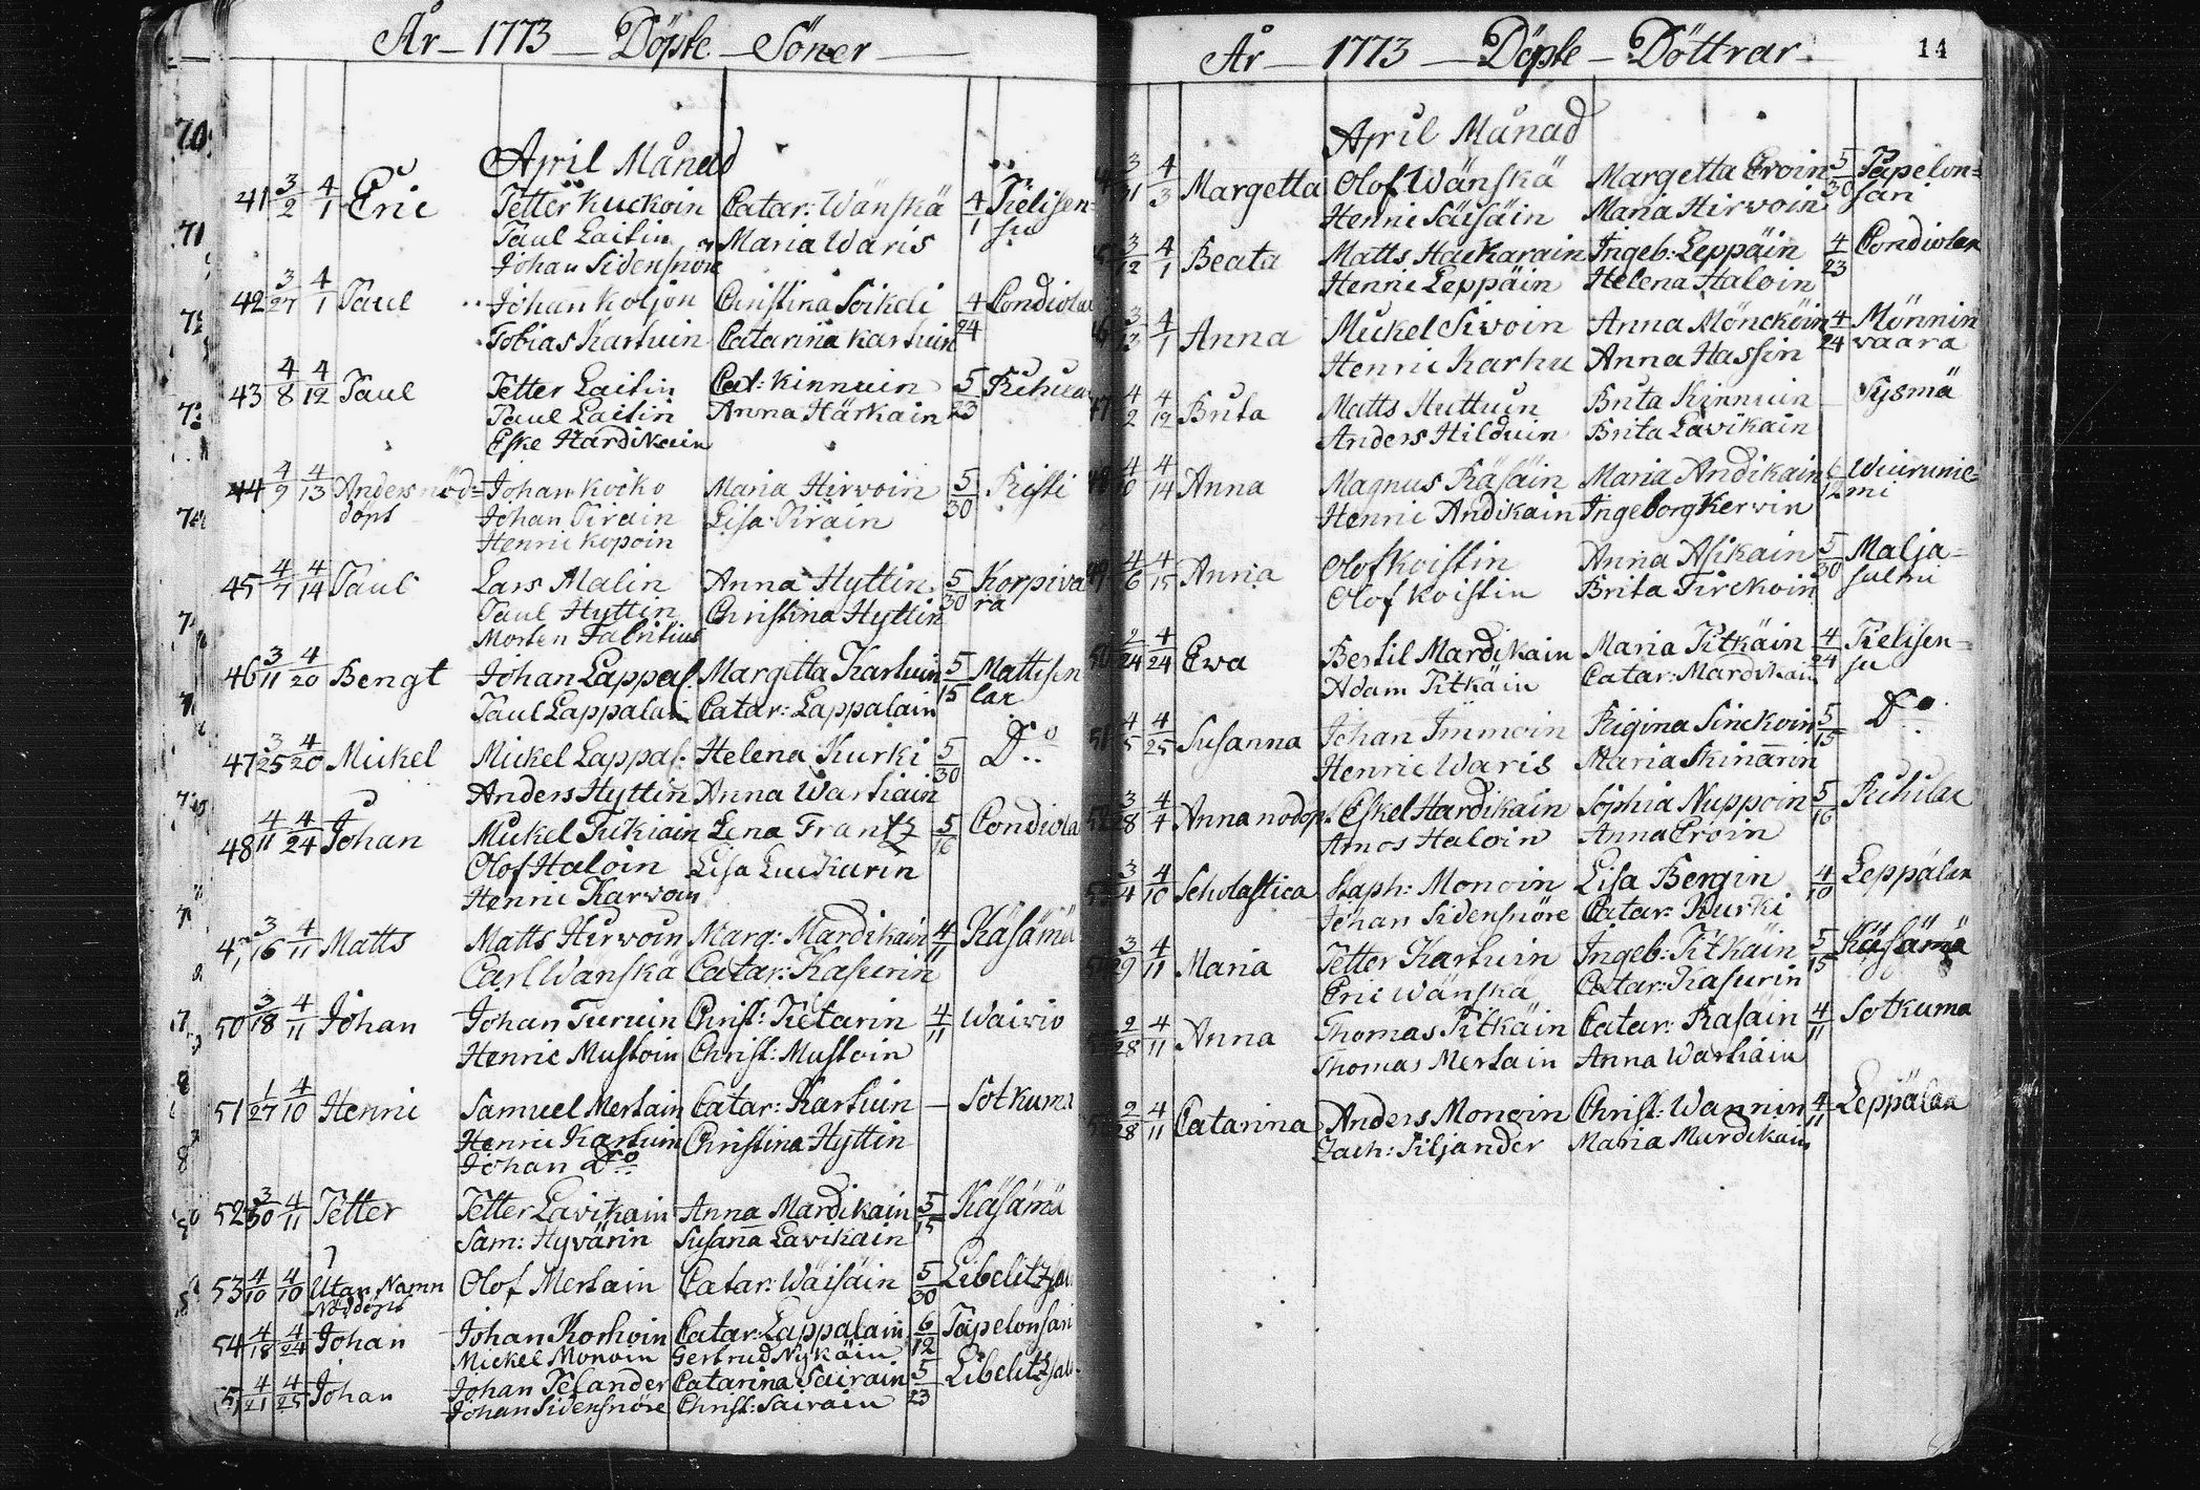 År - 1773 - Döpte - Söner
April Månad
41 3/2 4/1 Eric Petter Kuckoin Catar: Wänskä 4/1 Pielisen=
Paul Laitin Maria Waris su
Johan Sidensnöre
42 3/27 4/1 Paul Johan Koljon Christina Soikeli 4/24 Condiolax
Tobias Karhuin Catarina Karhuin
43 4/8 4/12 Paul Petter Laitin Cat: Kinnuin 5/23
Paul Laitin Anna Härkäin
Eske Hardikain
44 4/9 4/13 Anders nöd= Johan Kocko Maria Hirvoin 5/30 Risti
döpt Johan Pirain Lisa Pirain
Henric Kopoin
45 4/7 4/14 Paul Lars Malin Anna Hyttin 5/30 Korpiva
Paul Hyttin Christina Hyttin ra
Morten Fabritius
46 3/11 4/20 Bengt Johan Lappal. Margetta Karhuin 5/15 Mattisen
Paul Lappalain Catar: Lappalain lax
47 3/25 4/20 Mickel Mickel Lappal: Helena Kurki 5/30 Do
Anders Hyttin Anna Wartiain
48 4/11 4/24 Johan Mickel Tukiain Lena Frantz 5/16 Condiola
Olof Haloin Lisa Luckarin
Henric Karvoin
3/16 4/11 Matts Matts Hirvoin Marg: Mardikain 4/11 Käsämä
Carl Wänskä Catar: Kasurin
50 3/18 4/11 Johan Johan Turuin Christ: Pietarin 4/11 Waivio
Henric Mustoin Christ: Mustoin
51 1/27 4/10 Henric Samuel Mertain Catar: Karhuin - Sotkuma
Henric Karhuin Christina Hyttin
Johan Do
52 3/30 4/11 Petter Petter Lavikain Anna Mardikain 5/15 Käsämä
Sam: Hyvärin Susana Lavikain
53 4/10 4/10 Utan Namn Olof Mertain Catar: Wäisäin 5/30 Libelitz
Nöddöpt
54 4/18 4/24 Johan Johan Korhoin Catar: Lappalain 6/12 Papelonsari
Mickel Monoin Gertrud Nykäin
4/21 4/25 Johan Johan Pelander Catarina Sairain 5/23 Libelitz
Johan Sidensnöre Christ: Sairain
År - 1773 - Döpte - Döttrar 14
April Månad
3/31 4/3 Margetta Olof Wänskä Margetta Eroin 5/30 Papelon=
Henric Säisäin Maria Hirvoin sari
3/12 4/1 Beata Matts Hackarain Ingeb: Leppäin 4/23 Condiolax
Henric Leppäin Helena Haloin
4/1 Anna Mickel Sivoin Anna Möncköin 4/24 Mönnin
Henric Karhu Anna Hassin vaara
47 4/2 4/12 Brita Matts Huttuin Brita Kinnuin - Sysmä
Anders Hilduin Brita Lavikain
4/14 Anna Magnus Räsäin Maria Andikain 6/12 Wuirunie=
Henric Andikain Ingeborg Kervin mi
4/6 4/15 Anna Olof Koistin Anna Asikain 5/30 Malja=
Olof Koistin Brita Tirckoin salmi
2/24 4/24 Ewa Bertil Mardikain Maria Pitkäin 4/24 Pielisen=
Adam Pitkäin Catar: Mardikain su
51 4/5 4/25 Susanna Johan Immoin Rigina Sinckoin 5/15 Do
Henric Waris Maria Skinarin
3/28 4/4 Anna nodop. Eskel Hardikain Sophia Nuppoin 5/16
Amos Haloin Anna Eroin
3/4 4/10 Scholastica Staph: Monoin Lisa Bergin 4/10 Leppälax
Johan Sidensnöre Catar: Kurki
3/29 4/11 Maria Petter Karhuin Ingeb: Pitkäin 5/15 Käsämä
Eric Wänskä Catar: Kasurin
2/28 4/11 Anna Thomas Pitkäin Catar: Räsäin 4/11 Sotkuma
Thomas Mertain Anna Wartiain
2/28 4/11 Catarina Anders Monoin Christ: Wannin 4/11 Leppälax
Zach: Siljander Maria Murdikain